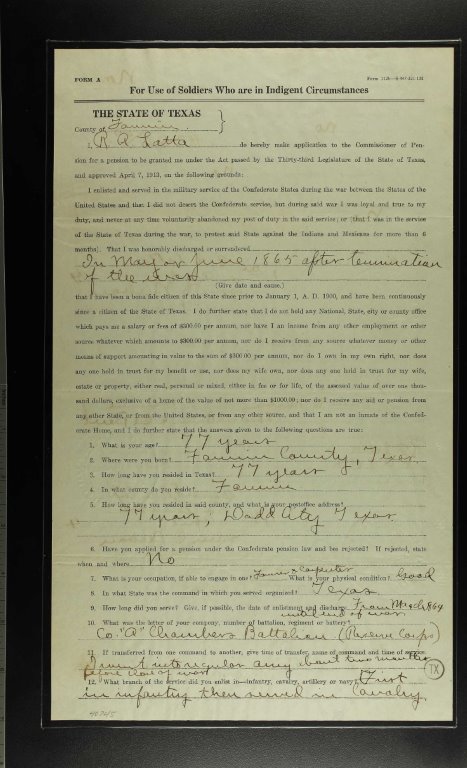 FORM A
For Use of Soldiers Who are in Indigent Circumstances
THE STATE OF TEXAS
County of Fannin
I, R A Latta do hereby make application to the Commissioner of Pen-
sion for a pension to be granted me under the Act passed by the Thirty-third Legislature of the State of Texas,
and approved April 7, 1913, on the following grounds:
I enlisted and served in the military service of the Confederate States during the war between the States of the
United States and that I did not desert the Confederate service, but during said war I was loyal and true to my
duty, and never at any time voluntarily abandoned my post of duty in the said service; or (that I was in the service
of the State of Texas during the war, to protect said State against the Indians and Mexicans for more than 6
months). That I was honorably discharged or surrendered
In May or June 1865 after termination
of the war
(Give date and cause.)
that I have been a bona fide citizen of this State since prior to January 1, A. D. 1900, and have been continuously
since a citizen of the State of Texas. I do further state that I do not hold any National, State, city or county office
which pays me a salary or fees of $300.00 per annum, nor have I an income from any other employment or other
source whatever which amounts to $300.00 per annum, nor do I receive from any source whatever money or other
means of support amounting in value to the sum of $300.00 per annum, nor do I own in my own right, nor does
any one hold in trust for my benefit or use, nor does my wife own, nor does any one hold in trust for my wife,
estate or property, either real, personal or mixed, either in fee or for life, of the assessed value of over one thou-
sand dollars, exclusive of a home of the value of not more than $1000.00; nor do I receive any aid or pension from
any other State, or from the United States, or from any other source, and that I am not an inmate of the Confed-
erate Home, and I do further state that the answers given to the following questions are true:
1. What is your age? 77 years
2. Where were you born? Fannin County, Texas
3. How long have you resided in Texas? 77 years
4. In what county do you reside? Fannin
5. How long have you resided in said county, and what is your postoffice address?
77 years, Dodd City Texas
6. Have you applied for a pension under the Confederate pension law and been rejected? If rejected, state
when and where No
7. What is your occupation, if able to engage in one? Farmer & Carpenter What is your physical condition? Good
8. In what State was the command in which you served organized? Texas
9. How long did you serve? Give, if possible, the date of enlistment and discharge. From March 1864
until end of war
10. What was the letter of your company, number of battalion, regiment or battery?
Co. "A" Chambers Battalion (Reserve Corps)
11. If transferred from one command to another, give time of transfer, name of command and time of service.
I went into regular army about two months
before close of war
12. What branch of the service did you enlist in—infantry, cavalry, artillery or navy? First
in infantry then served in Cavalry
TX